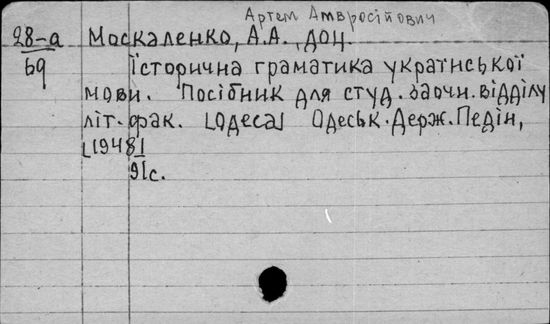 Артем Амвросійович
28-а Москаленко, А.А. доц.
69 Історична граматика української
мови. Посібник для студ. заочн. відділу
літ. фак. [Одеса] Одеськ. Держ. Педін,
[1948]
91с.